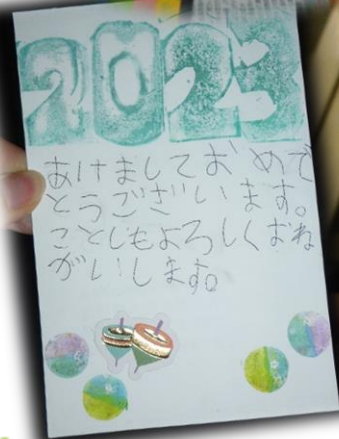 2023
あけましておめで
とうございます。
ことしもよろしくおね
がいします。